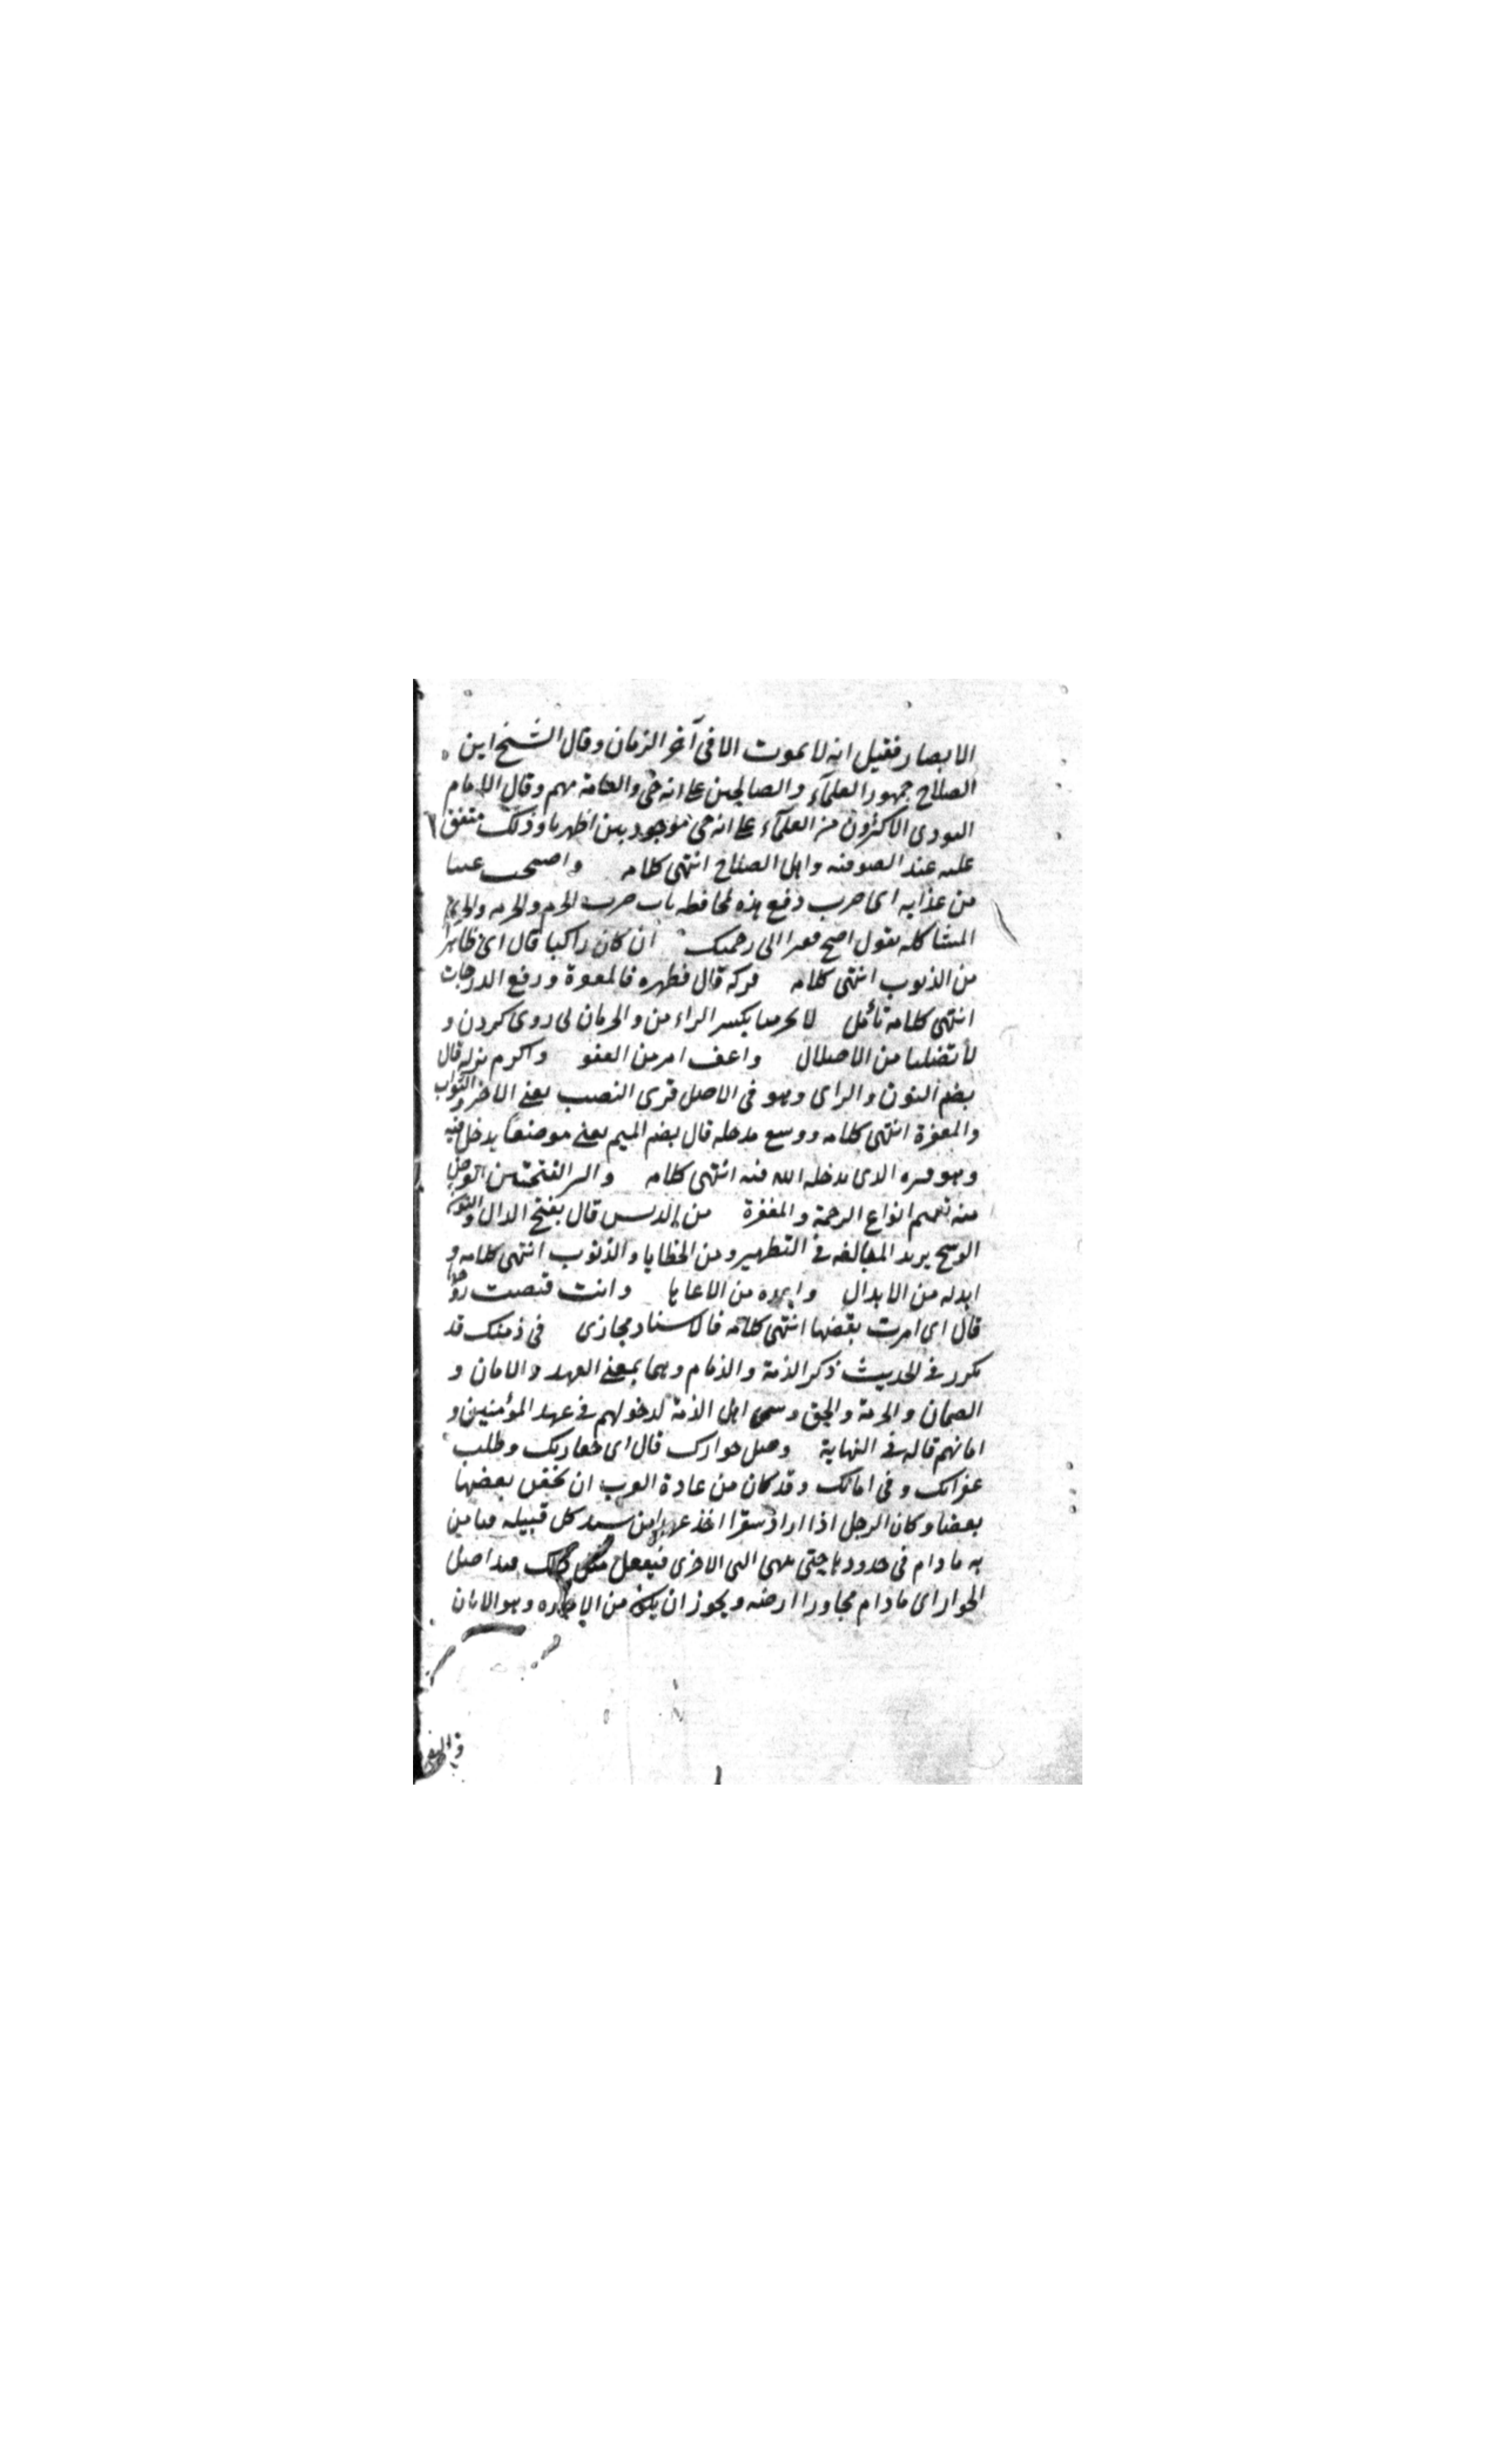 الابصار فقيل انه لا يموت الا فى آخر الزمان وقال الشيخ ابن
الصلاح جمهور العلماء والصالحين على انه حى والعامة معهم وقال الامام
النووى الاكثرون من العلماء على انه حى موجود بين اظهرنا وذلك متفق
عليه عند الصوفيه واهل الصلاح انتهى كلامه
من عذابه اى دفع هذه
المشاكله يقول اصبح فقيرا الى رحمتك ان كان زاكيا قال اى طاهرا
من الذنوب انتهى كلامه فزكه قال فطهره فالمغفرة ورفع الدرجات
انتهى كلامه تأمل لا تحرمنا بكسر الراء من والحرمان بى روى كردن و
لا تضلنا من الاضلال واعف امر من العفو واكرم نزله قال
بضم النون والزاى وهو فى الاصل قرى الضيف يعنى الاجر والثواب
والمغفرة انتهى كلامه ووسع مدخله قال بضم الميم يعنى موضعا يدخل فيه
وهو قبره الذى يدخله الله فيه انتهى كلامه
منه تعميم انواع الرحمة والمغفرة من الدنس قال بفتح الدال والنون
الوسخ يريد المبالغه فى التطهير ومن الخطايا والذنوب انتهى كلامه و
ابدله من الابدال من الاعاذة وانت قبضت روحها
قال اى امرت بقبضها انتهى كلامه فالاسناد مجازى فى ذمتك قد
تكرر فى الحديث ذكر الذمة والذمام وهما بمعنى العهد والامان و
الضمان والحرمة والحق وسمى اهل الذمة لدخولهم فى عهد المؤمنين و
امانهم قاله فى النهاية وحبل جوارك قال اى خفارتك وطلب
غفرانك وفى امانك وقد كان من عادة العرب ان يخفر بعضها
بعضا وكان الرجل اذا اراد سفرا اخذ عهدا من سيد كل قبيله فيامن
به مادام فى حدودها حتى ينتهى الى الاخرى فيفعل مثل ذلك فهذا اصل
الجوار اى مادام مجاورا ارضه ويجوز ان يكون من الاجاره وهو الامان